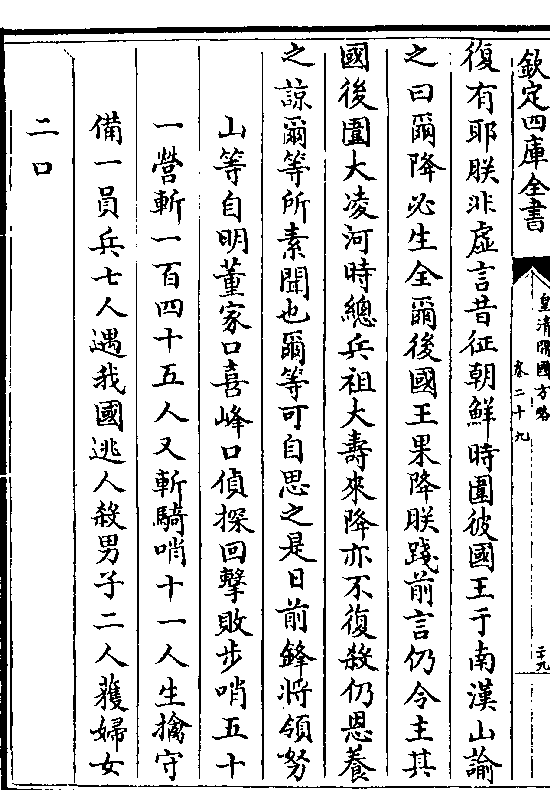 欽定四庫全書
皇清開國方略
卷二十九
復有耶朕非虛言昔征朝鮮時圍彼國王于南漢山諭
之曰爾降必生全爾後國王果降朕踐前言仍令主其
國後圍大凌河時總兵祖大壽來降亦不復殺仍恩養
之諒爾等所素聞也爾等可自思之是日前鋒將領努
山等自明董家口喜峰口偵探回擊敗步哨五十
一營斬一百四十五人又斬騎哨十一人生擒守
備一員兵七人遇我國逃人殺男子二人獲婦女
二口